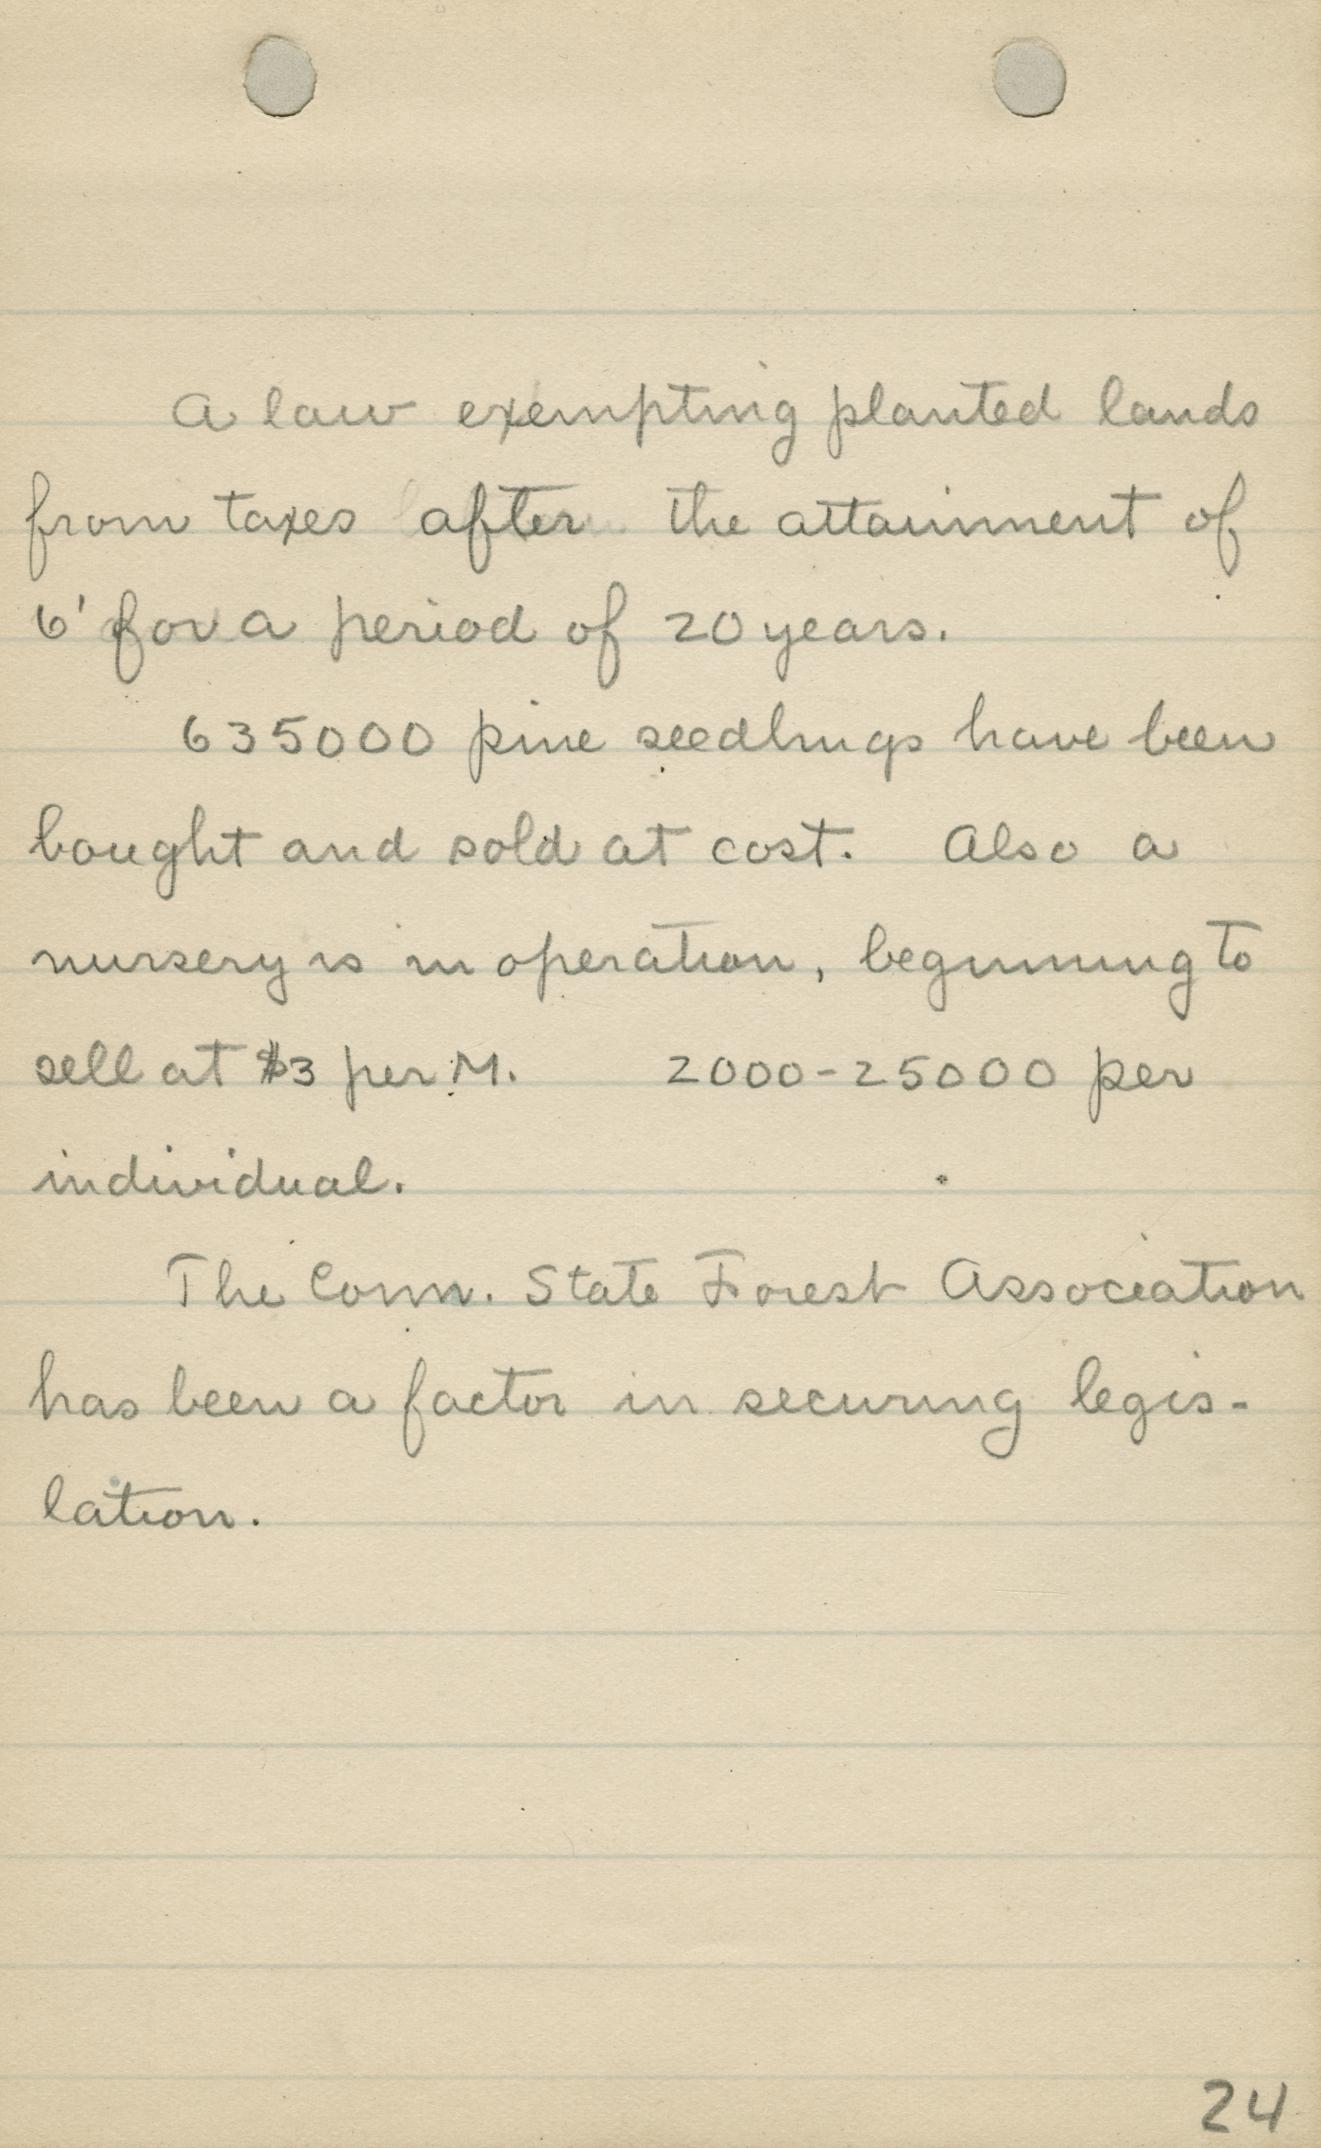 A law exempting planted lands
from taxes after the attainment of
6' for a period of 20 years.
635000 pine seedlings have been
bought and sold at cost. Also a
nursery is in operation, beginning to
sell at $3 per M. 2000-25000 per
individual.
The Conn. State Forest Association
has been a factor in securing legis-
lation.
24